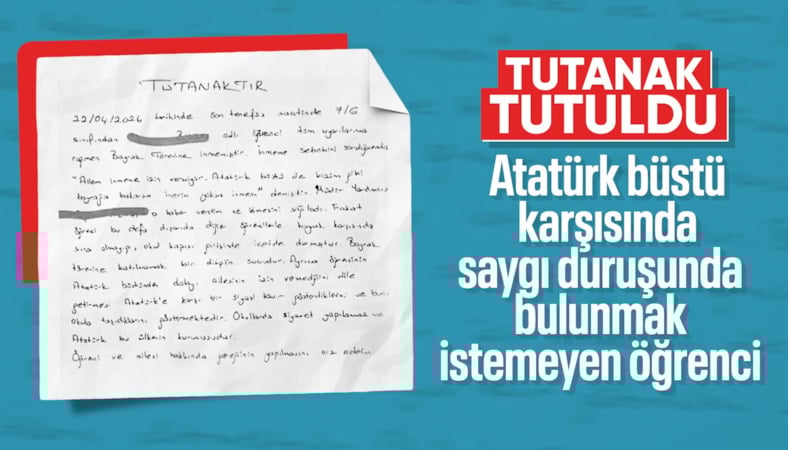 TUTANAKTIR
22/04/2026 tarihinde son teneffüs saatinde 7/G
sınıfından B adlı öğrenci tüm uyarılarıma
rağmen Bayrak Törenine inmemiştir. İnmeme sebebini sorduğumda
"Ailem inmeme izin vermiyor. Atatürk büstü de bizim gibi
bayrağa baksın inerim yoksa inmem" demiştir. Müdür Yardımcısı
haber verdim ve inmesini sağladı. Fakat
öğrenci bu defa dışarıda diğer öğrencilerle bayrak karşısında
sıra olmayıp, okul kapısı girişinde içeride durmuştur. Bayrak
törenine katılmamak bir disiplin suçudur. Ayrıca öğrencinin
Atatürk büstünden dolayı ailesinin izin vermediğini dile
getirmesi Atatürk'e karşı bir siyasi tavır gösterdiklerini ve bunu
okula taşıdıklarını göstermektedir. Okullarda siyaset yapılamaz ve
Atatürk bu ülkenin kurucusudur.
Öğrenci ve ailesi hakkında gereğinin yapılmasını arz ederim.
TUTANAK
TUTULDU
Atatürk büstü
karşısında
saygı duruşunda
bulunmak
istemeyen öğrenci